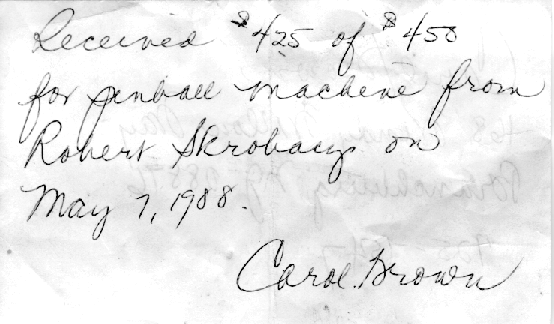 Received $425 of $450
for pinball machine from
Robert Skrobacz on
May 7, 1988.
Carol Brown